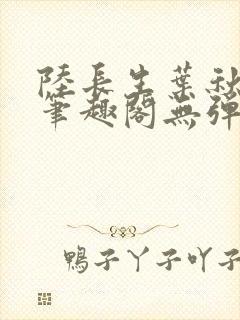 陸長生葉秋
筆趣閣無彈
鴨子丫子吖子